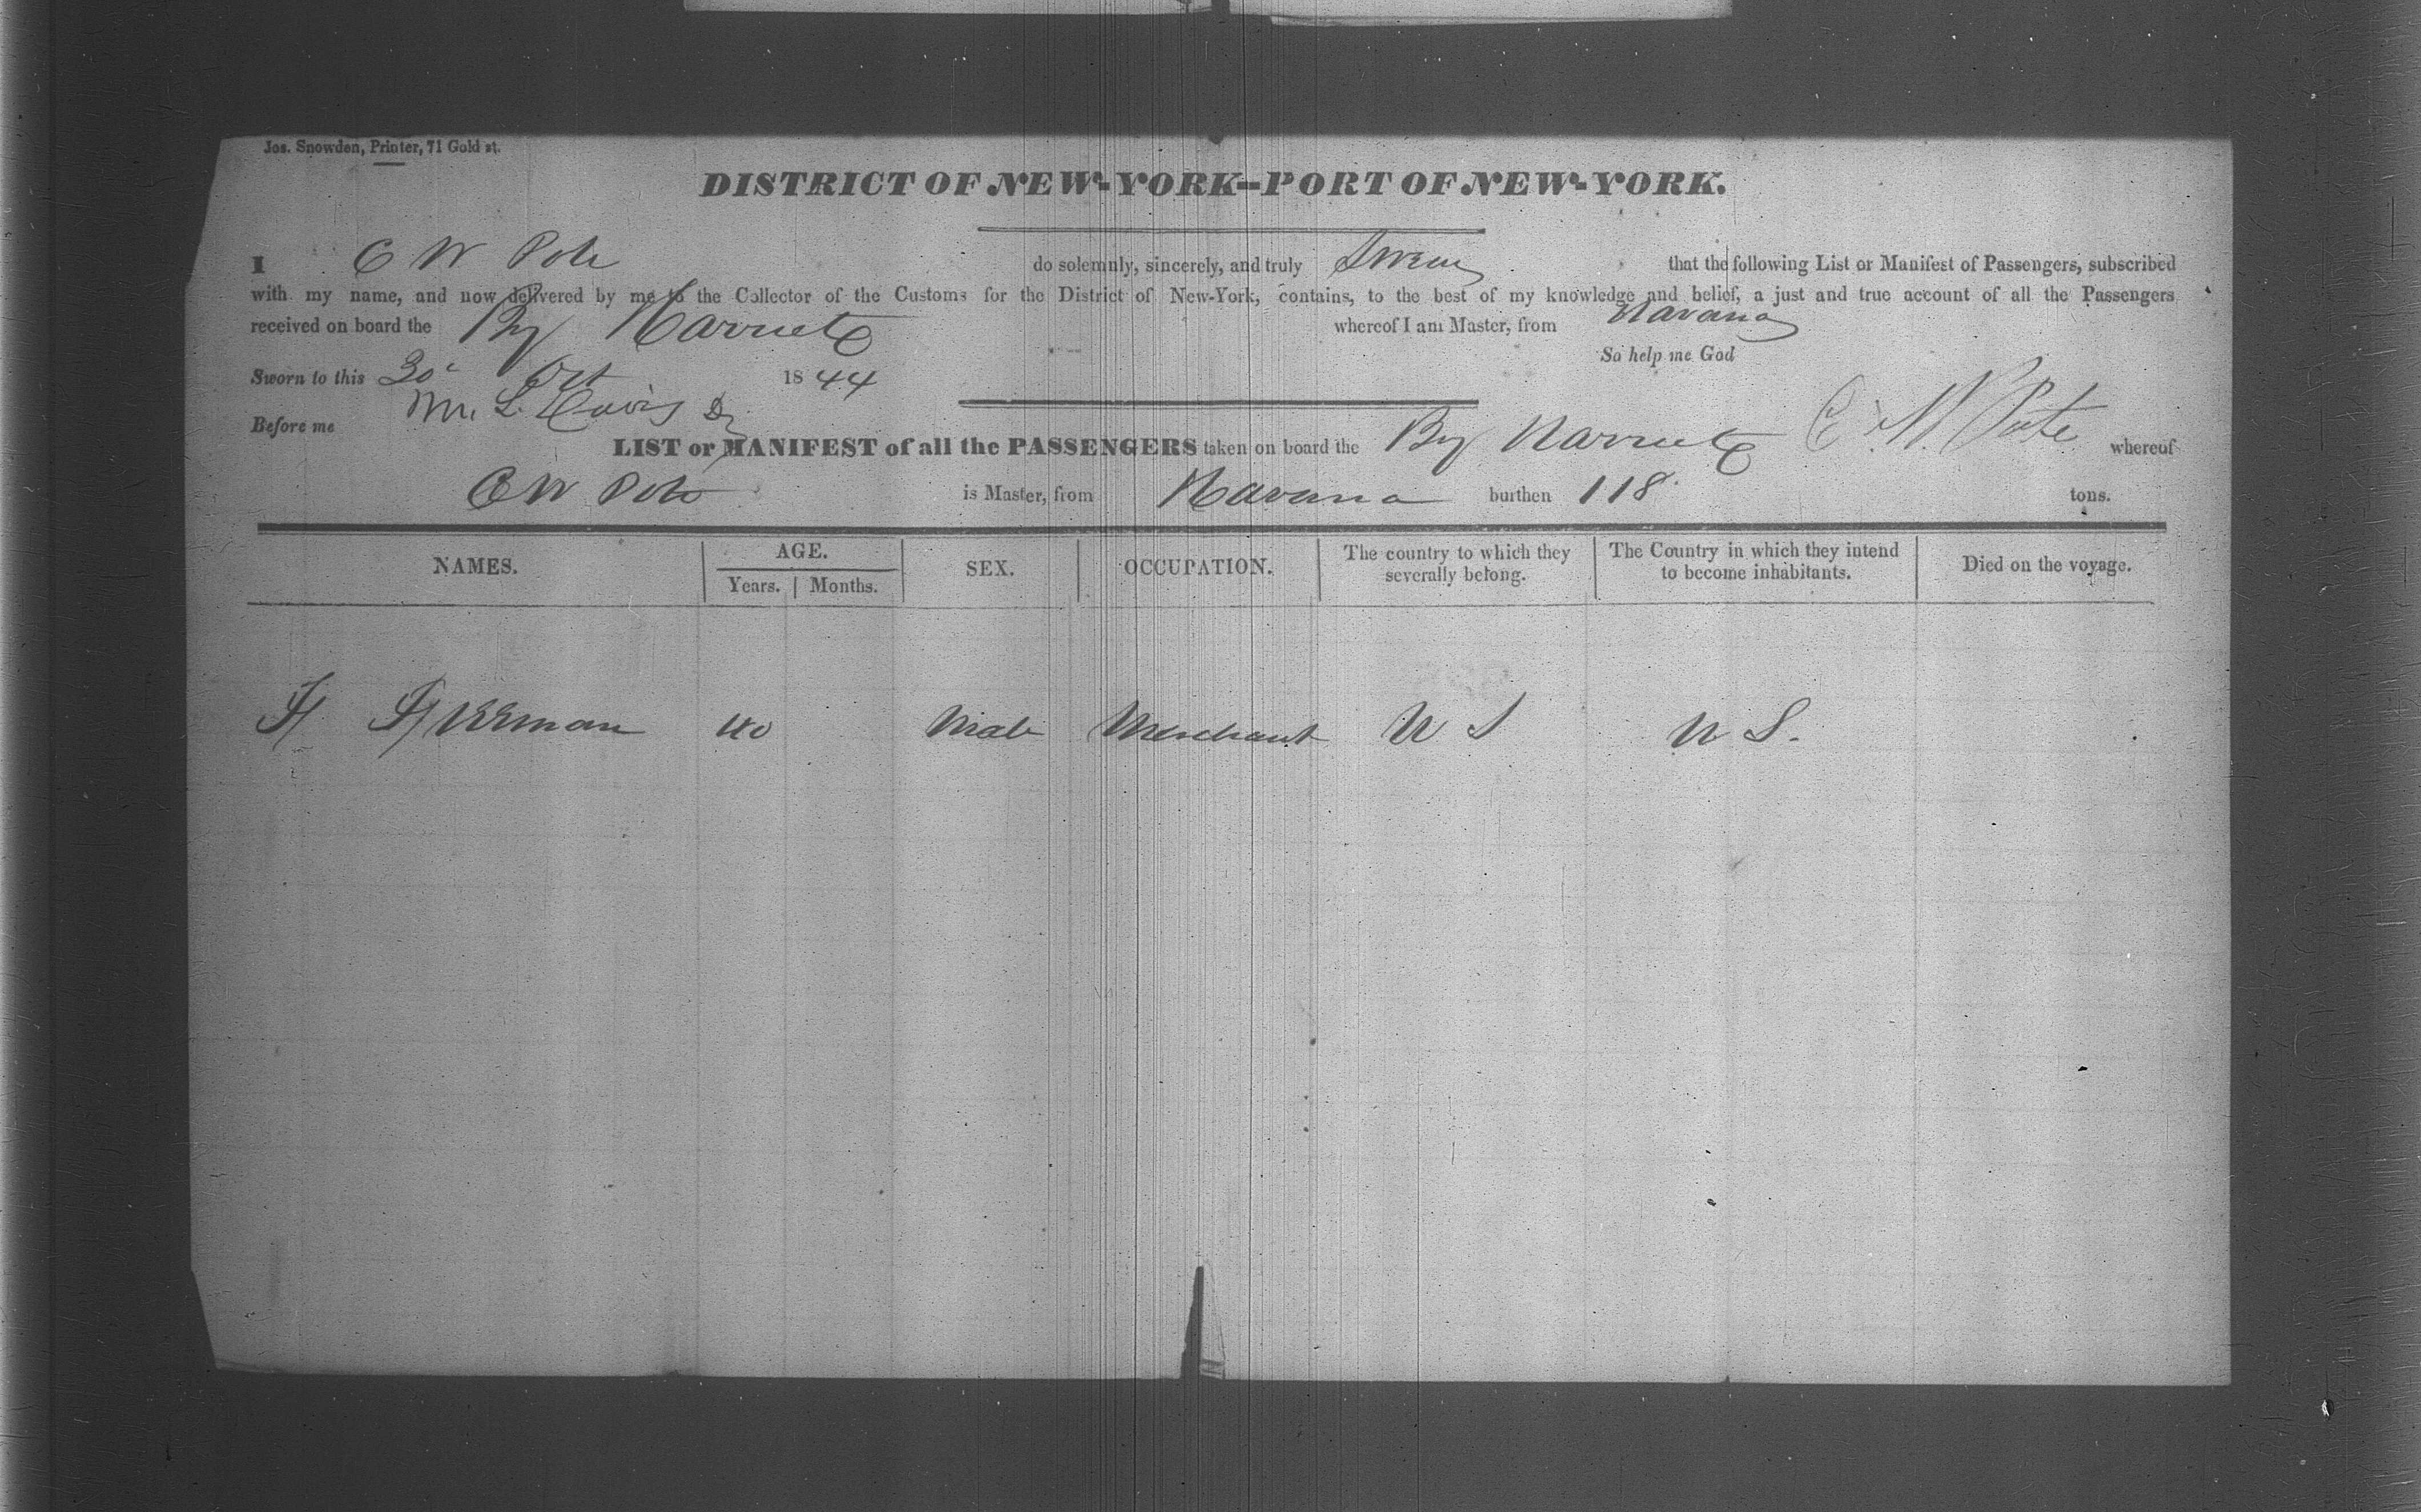 Jos. Snowden, Printer, 71 Gold st.
DISTRICT OF NEW-YORK--PORT OF NEW-YORK.
I C W Pote do solemnly, sincerely, and truly Swear that the following List or Manifest of Passengers, subscribed
with my name, and now delivered by me to the Collector of the Customs for the District of New-York, contains, to the best of my knowledge and belief, a just and true account of all the Passengers
received on board the Brig Harriet whereof I am Master, from Havana
So help me God
Sworn to this 30 Oct 1844
Before me L. Davis
C W Pote
LIST or MANIFEST of all the PASSENGERS taken on board the Brig Harriet whereof
C W Pote is Master, from Havana burthen 118 tons.
NAMES. AGE. SEX. OCCUPATION. The country to which they severally belong. The Country in which they intend to become inhabitants. Died on the voyage.
Years. Months.
40 Male Merchant U S U S.